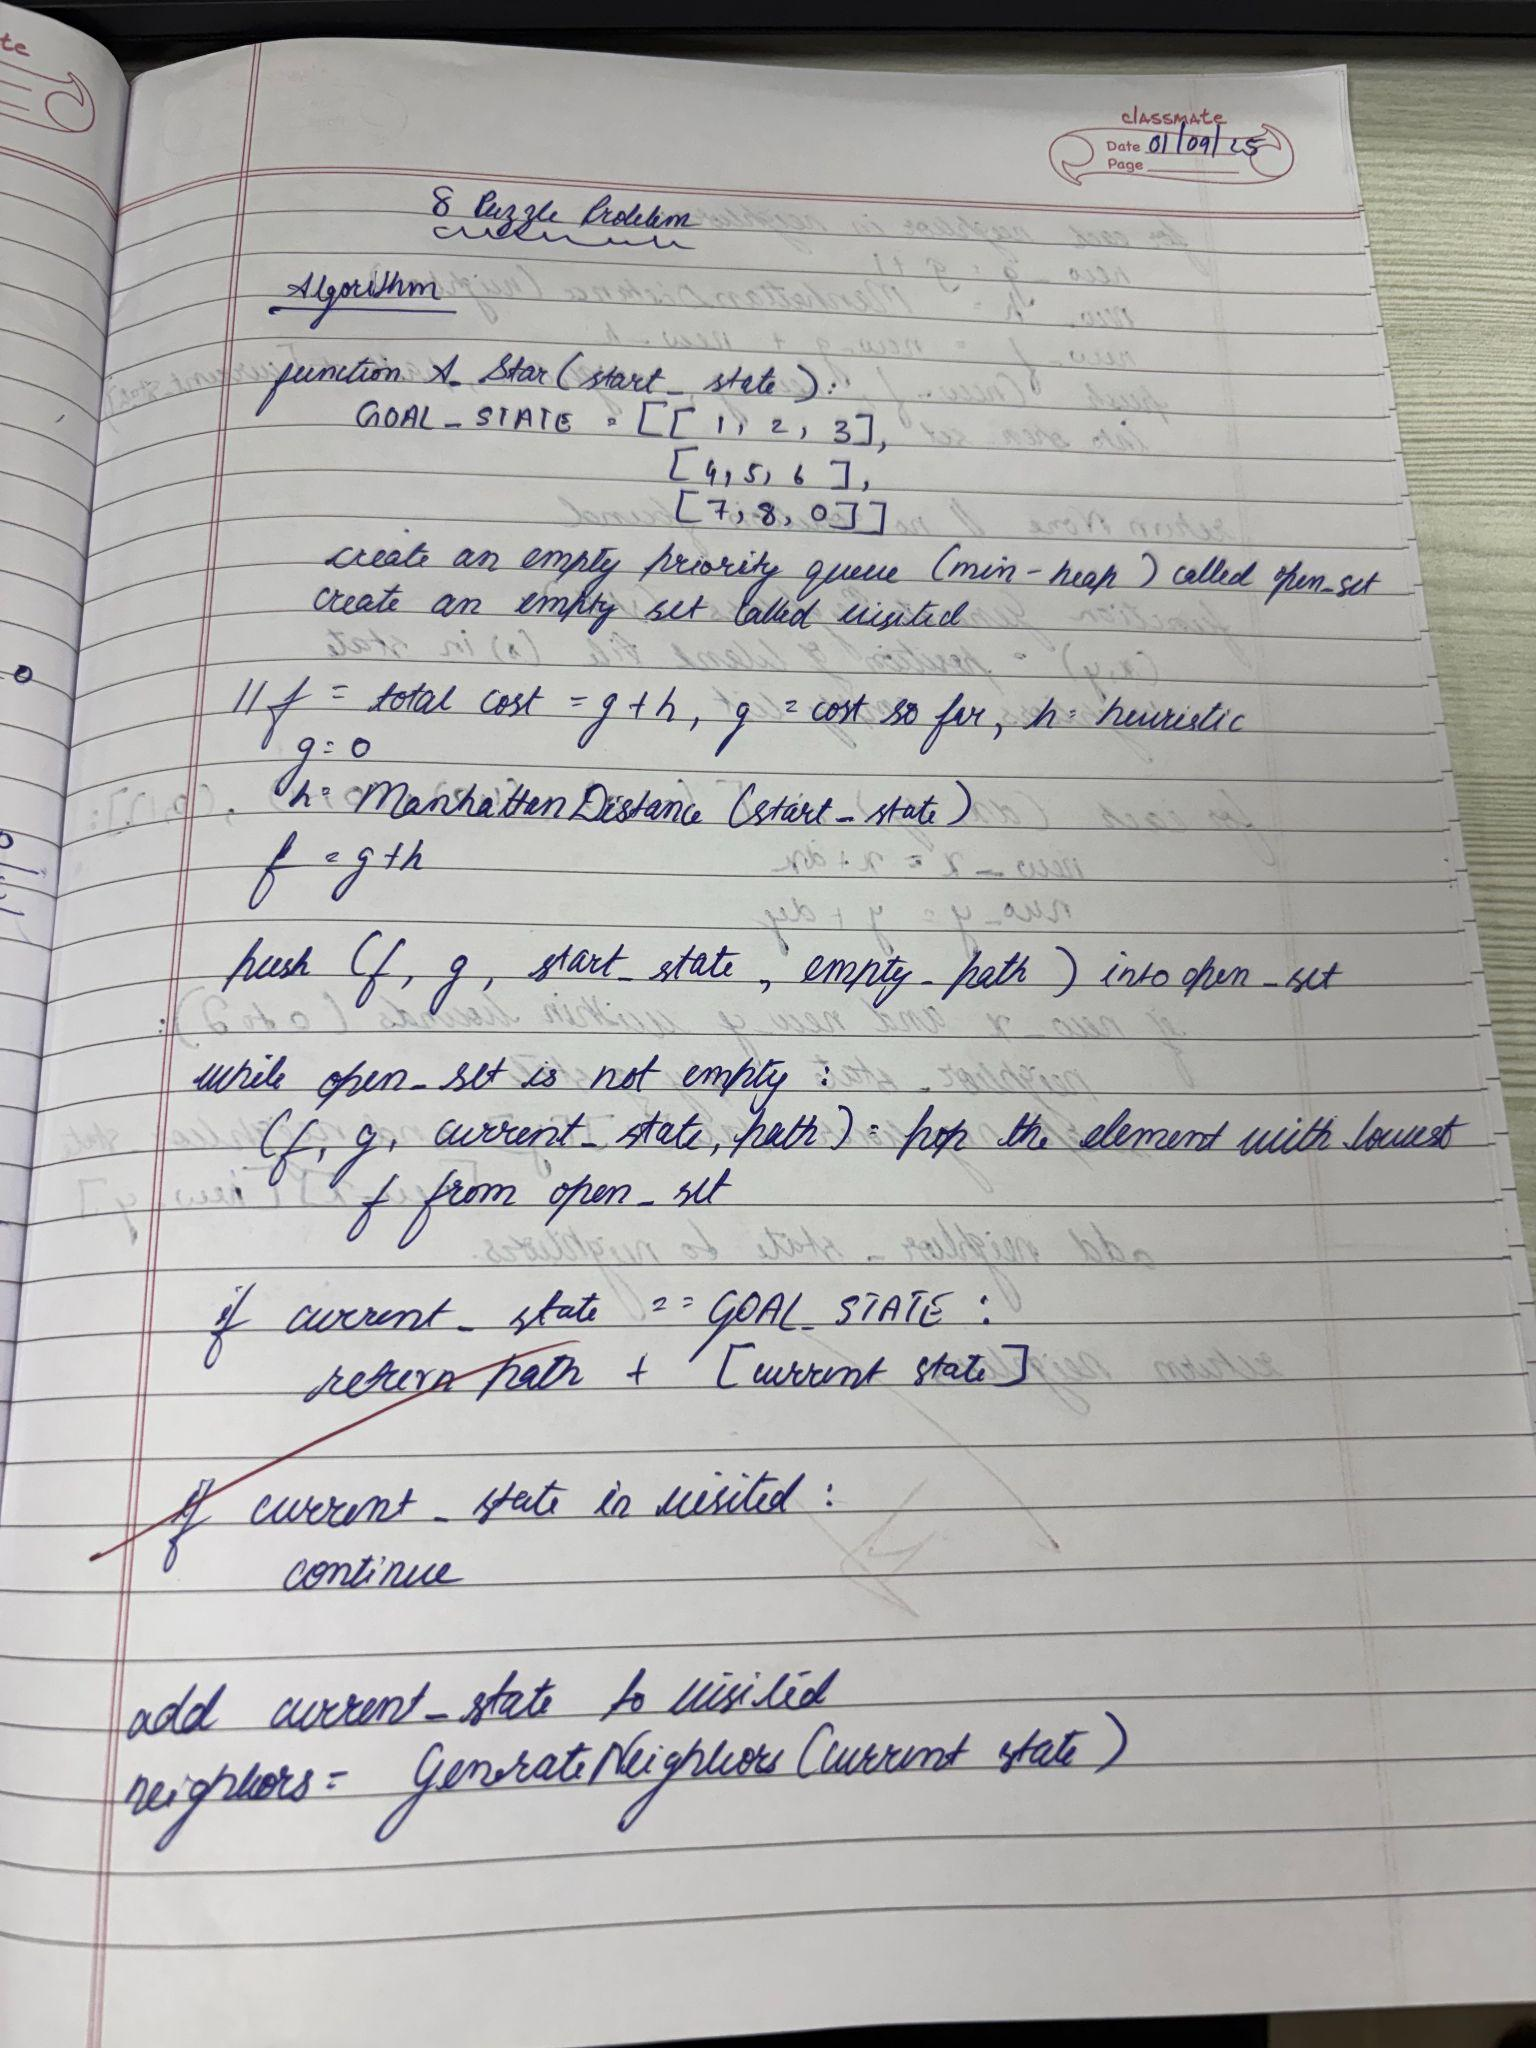 te
classmate
Date 01/09/25
Page
8 Puzzle Problem
Algorithm
function A_Star(start_state):
GOAL_STATE = [[1, 2, 3],
[4, 5, 6],
[7, 8, 0]]
create an empty priority queue (min-heap) called open_set
create an empty set called visited
// f = total cost = g+h, g = cost so far, h = heuristic
g=0
h= ManhattanDistance (start_state)
f = g+h
push (f, g, start_state, empty_path) into open_set
while open_set is not empty:
(f, g, current_state, path) = pop the element with lowest
f from open_set
if current_state == GOAL_STATE:
return path + [current state]
if current_state in visited:
continue
add current_state to visited
neighbors = GenerateNeighbors(current state)